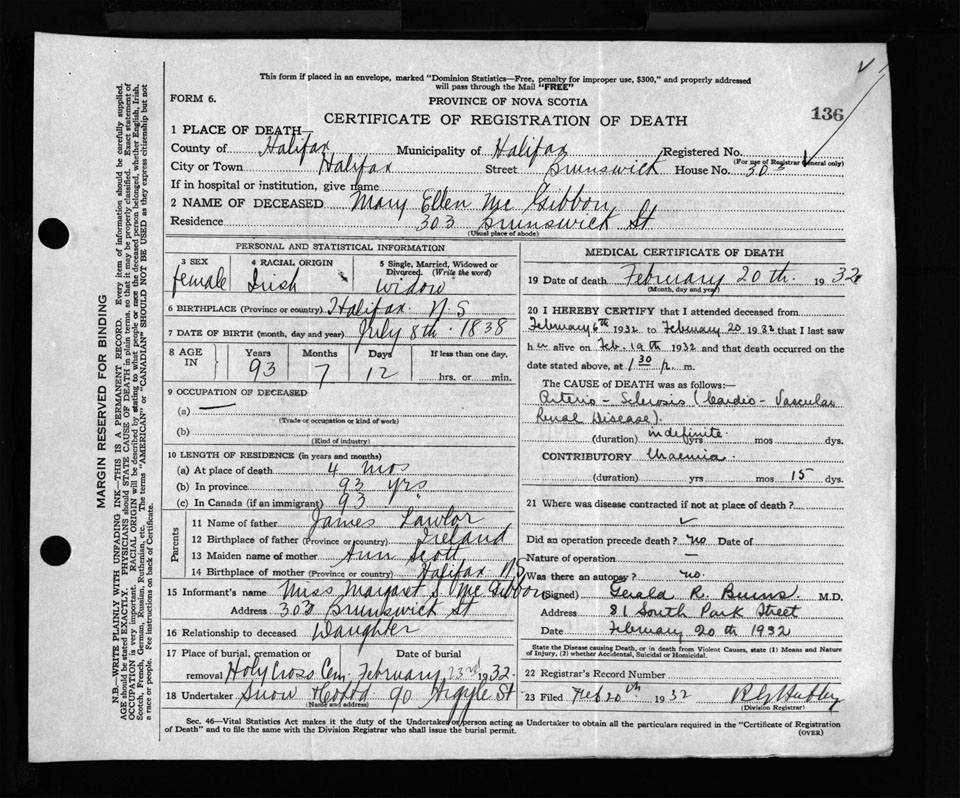 This form if placed in an envelope, marked "Dominion Statistics—Free, penalty for improper use, $300," and properly addressed
will pass through the Mail "FREE"
FORM 6.
PROVINCE OF NOVA SCOTIA
136
CERTIFICATE OF REGISTRATION OF DEATH
1 PLACE OF DEATH—
County of Halifax Municipality of Halifax Registered No.
(For use of Registrar General only)
City or Town Halifax Street Brunswick House No. 303
If in hospital or institution, give name
2 NAME OF DECEASED Mary Ellen Mc Gibbon
Residence 303 Brunswick St
(Usual place of abode)
PERSONAL AND STATISTICAL INFORMATION
3 SEX 4 RACIAL ORIGIN 5 Single, Married, Widowed or
Divorced. (Write the word)
female Irish widow
6 BIRTHPLACE (Province or country) Halifax N.S
7 DATE OF BIRTH (month, day and year) July 8th 1838
8 AGE IN Years Months Days If less than one day.
93 7 12 hrs. or min.
9 OCCUPATION OF DECEASED
(a) —
(Trade or occupation or kind of work)
(b)
(Kind of industry)
10 LENGTH OF RESIDENCE (in years and months)
(a) At place of death 4 mos
(b) In province 93 yrs
(c) In Canada (if an immigrant) 93
Parents
11 Name of father James Lawlor
12 Birthplace of father (Province or country) Ireland
13 Maiden name of mother Ann Scott
14 Birthplace of mother (Province or country) Halifax NS
15 Informant's name Miss Margaret S. Mc Gibbon
Address 303 Brunswick St
16 Relationship to deceased Daughter
17 Place of burial, cremation or removal Date of burial
Holy Cross Cem. February 23rd 1932
18 Undertaker Snow & Co 90 Argyle St
(Name and address)
MEDICAL CERTIFICATE OF DEATH
19 Date of death February 20th. 1932
(Month, day and year)
20 I HEREBY CERTIFY that I attended deceased from
February 6th 1932 to February 20 1932 that I last saw
her alive on Feb. 19th 1932 and that death occurred on the
date stated above, at 1 30 p. m.
The CAUSE OF DEATH was as follows:—
Arterio-Sclerosis (Cardio-Vascular
Renal Disease).
(duration) indefinite yrs mos dys.
CONTRIBUTORY Uraemia
(duration) yrs mos 15 dys.
21 Where was disease contracted if not at place of death?
Did an operation precede death? no Date of
Nature of operation —
Was there an autopsy? no.
(Signed) Gerald R. Burns. M.D.
Address 81 South Park Street
Date February 20th 1932
State the Disease causing Death, or in death from Violent Causes, state (1) Means and Nature of Injury, (2) whether Accidental, Suicidal or Homicidal.
22 Registrar's Record Number
23 Filed Feb 20th 1932
(Division Registrar)
Sec. 46—Vital Statistics Act makes it the duty of the Undertaker or person acting as Undertaker to obtain all the particulars required in the "Certificate of Registration
of Death" and to file the same with the Division Registrar who shall issue the burial permit. (OVER)
MARGIN RESERVED FOR BINDING
N.B.—WRITE PLAINLY WITH UNFADING INK—THIS IS A PERMANENT RECORD. Every item of information should be carefully supplied.
AGE should be stated EXACTLY. PHYSICIANS should STATE CAUSE OF DEATH in plain terms, so that it may be properly classified. Exact statement of
OCCUPATION is very important. RACIAL ORIGIN will be described by stating to what people or race the deceased person belonged, whether English, Irish,
Scotch, French, German, Russian, Ruthenian, etc. The terms "AMERICAN" or "CANADIAN" SHOULD NOT BE USED as they express citizenship but not
a race or people. Fee instructions on back of Certificate.